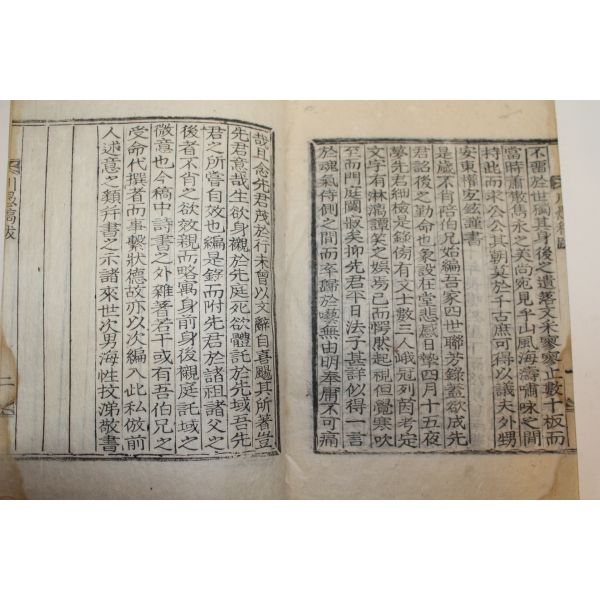 不雷於世獨其身後之遺落文采寥寥止數十板而
當時肅散雋永之美尚宛見乎山風海濤嘯咏之間
持此而求公公其朝莫於千古庶可得以議夫外甥
安東權宏鉉謹書
是歲不肖陪伯兄始編吾家四世聯芳錄蓋欲成先
君詒後之勤命也象設在堂悲感日摯四月十五夜
夢先君紬檢是錄傍有文士數三人峨冠列茵考定
文字有淋漓譚笑之娛焉已而愕然起視但覺寒吹
至而門庭闃寂矣抑先君平日法子甚詳似得一言
於魂氣侍側之間而卒歸於噓無由明奉庸不可痛
哉且念先君茂於行未曾以文辭自喜颺其所著豈
先君意哉生欲身襯於先庭死欲體託於先域吾先
君之所嘗自效也編是錄而附先君於諸祖諸父之
後者不肖之欲效親而略寓身前身後襯庭託域之
微意也今稿中詩書之外雜著若干或有吾伯兄之
受命代撰者而事繫狀德故亦以次編入此私倣前
人述意之類幷書之示諸來世次男海性抆涕敬書
稿跋
二